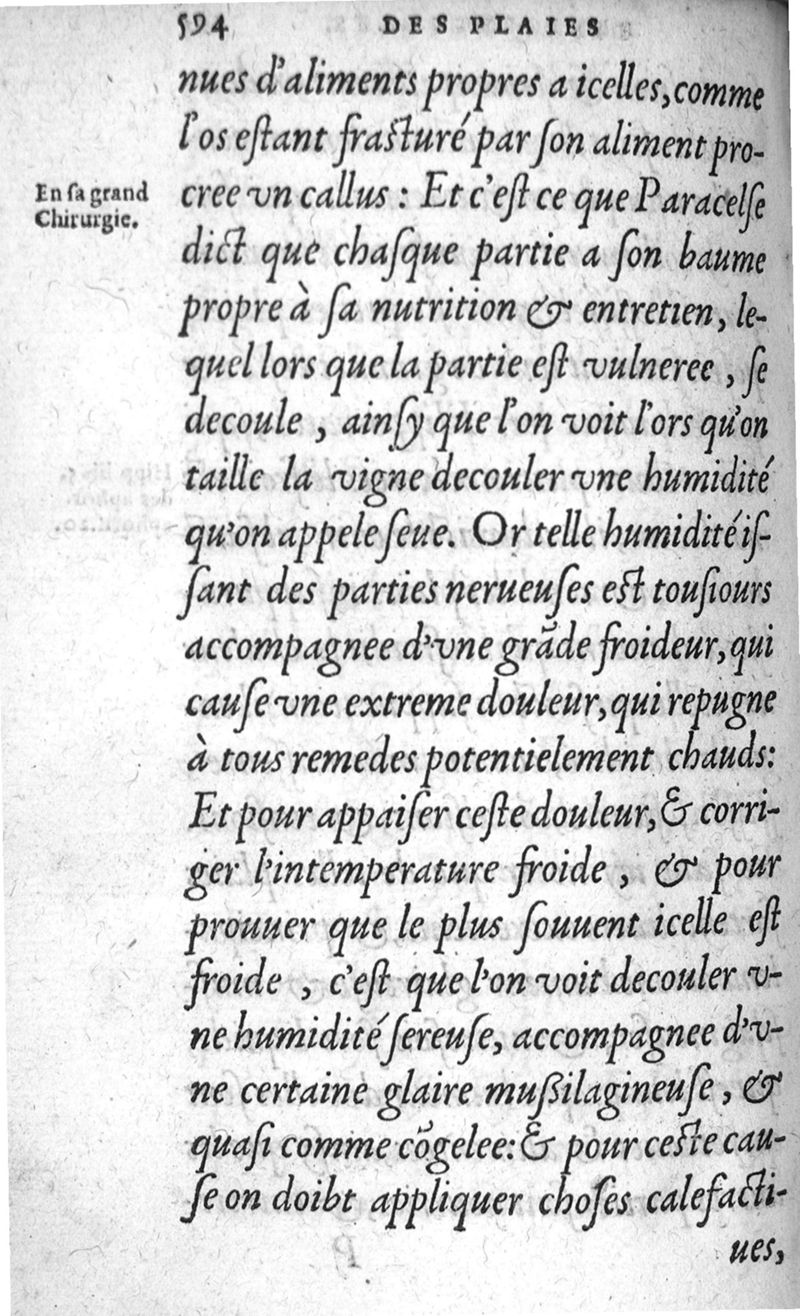 594 DES PLAIES
nues d'aliments propres a icelles, comme
l'os eſtant fracturé par ſon aliment pro-
En ſa grand
Chirurgie.
cree vn callus : Et c'eſt ce que Paracelſe
dict que chaſque partie a ſon baume
propre à ſa nutrition & entretien, le-
quel lors que la partie eſt vulneree , ſe
decoule , ainſy que l'on voit l'ors qu'on
taille la vigne decouler vne humidité
qu'on appele ſeue. Or telle humidité iſ-
ſant des parties nerueuſes eſt touſiours
accompagnee d'vne grãde froideur, qui
cauſe vne extreme douleur, qui repugne
à tous remedes potentielement chauds:
Et pour appaiſer ceſte douleur, & corri-
ger l'intemperature froide , & pour
prouuer que le plus ſouuent icelle eſt
froide , c'eſt que l'on voit decouler v-
ne humidité ſereuſe, accompagnee d'v-
ne certaine glaire muſsilagineuſe , &
quaſi comme cõgelee: & pour ceſte cau-
ſe on doibt appliquer choſes calefacti-
ues,